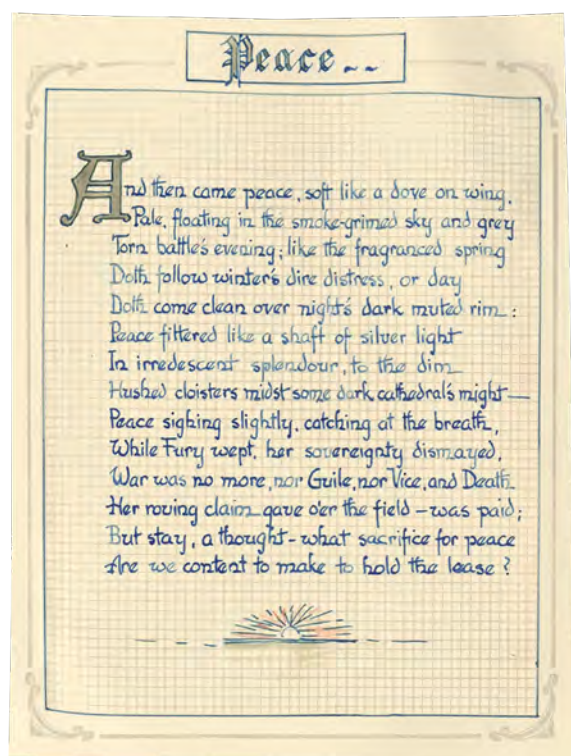 Peace..
And then came peace, soft like a dove on wing,
Pale, floating in the smoke-grimed sky and grey
Torn battle's evening; like the fragranced spring
Doth follow winter's dire distress, or day
Doth come clean over night's dark muted rim:
Peace filtered like a shaft of silver light
In irredescent splendour, to the dim
Hushed cloisters midst some dark cathedral's might—
Peace sighing slightly, catching at the breath,
While Fury wept, her sovereignty dismayed,
War was no more, nor Guile, nor Vice, and Death
Her roving claim gave o'er the field – was paid;
But stay, a thought – what sacrifice for peace
Are we content to make to hold the lease?